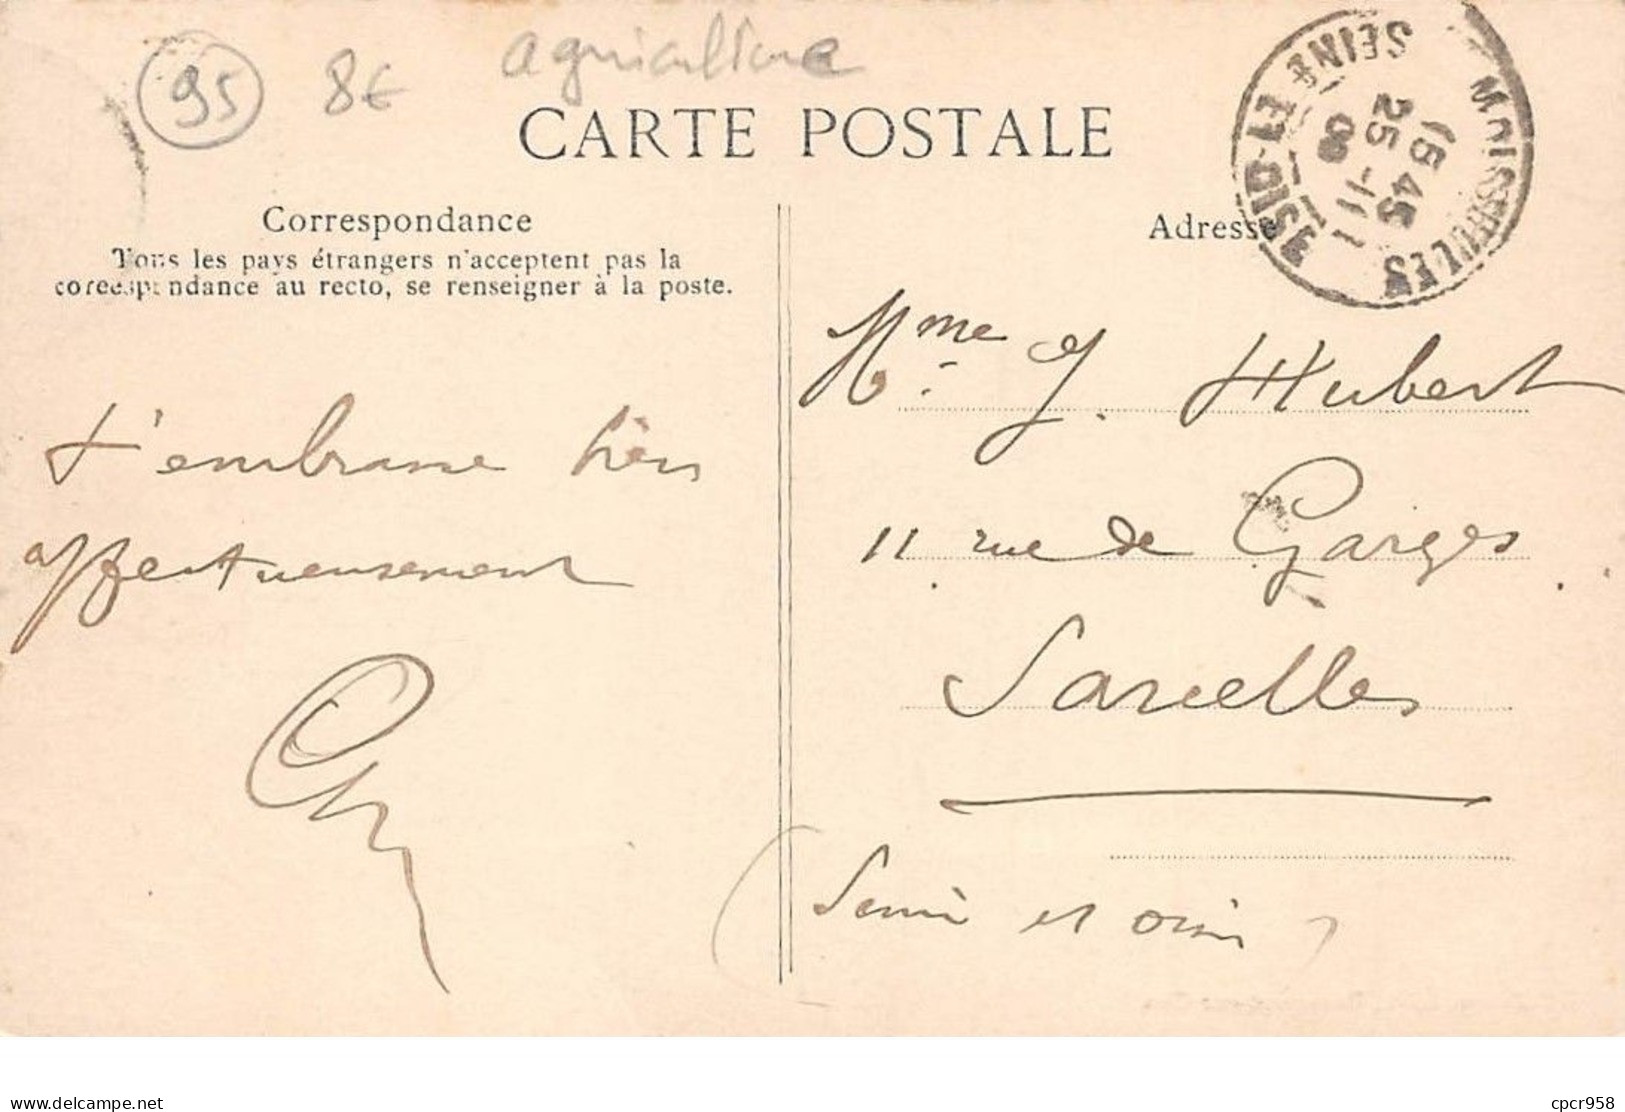 95 8€ agriculture
CARTE POSTALE
MOISSELLES
15 45
25 -11
08
SEINE ET-OISE
Correspondance
Tous les pays étrangers n'acceptent pas la
correspondance au recto, se renseigner à la poste.
Adresse
t'embrasse bien
affectueusement
Mme J. Hubert
11 rue de Garges
Sarcelles
(Seine et Oise)
delcampe.net
cpcr958